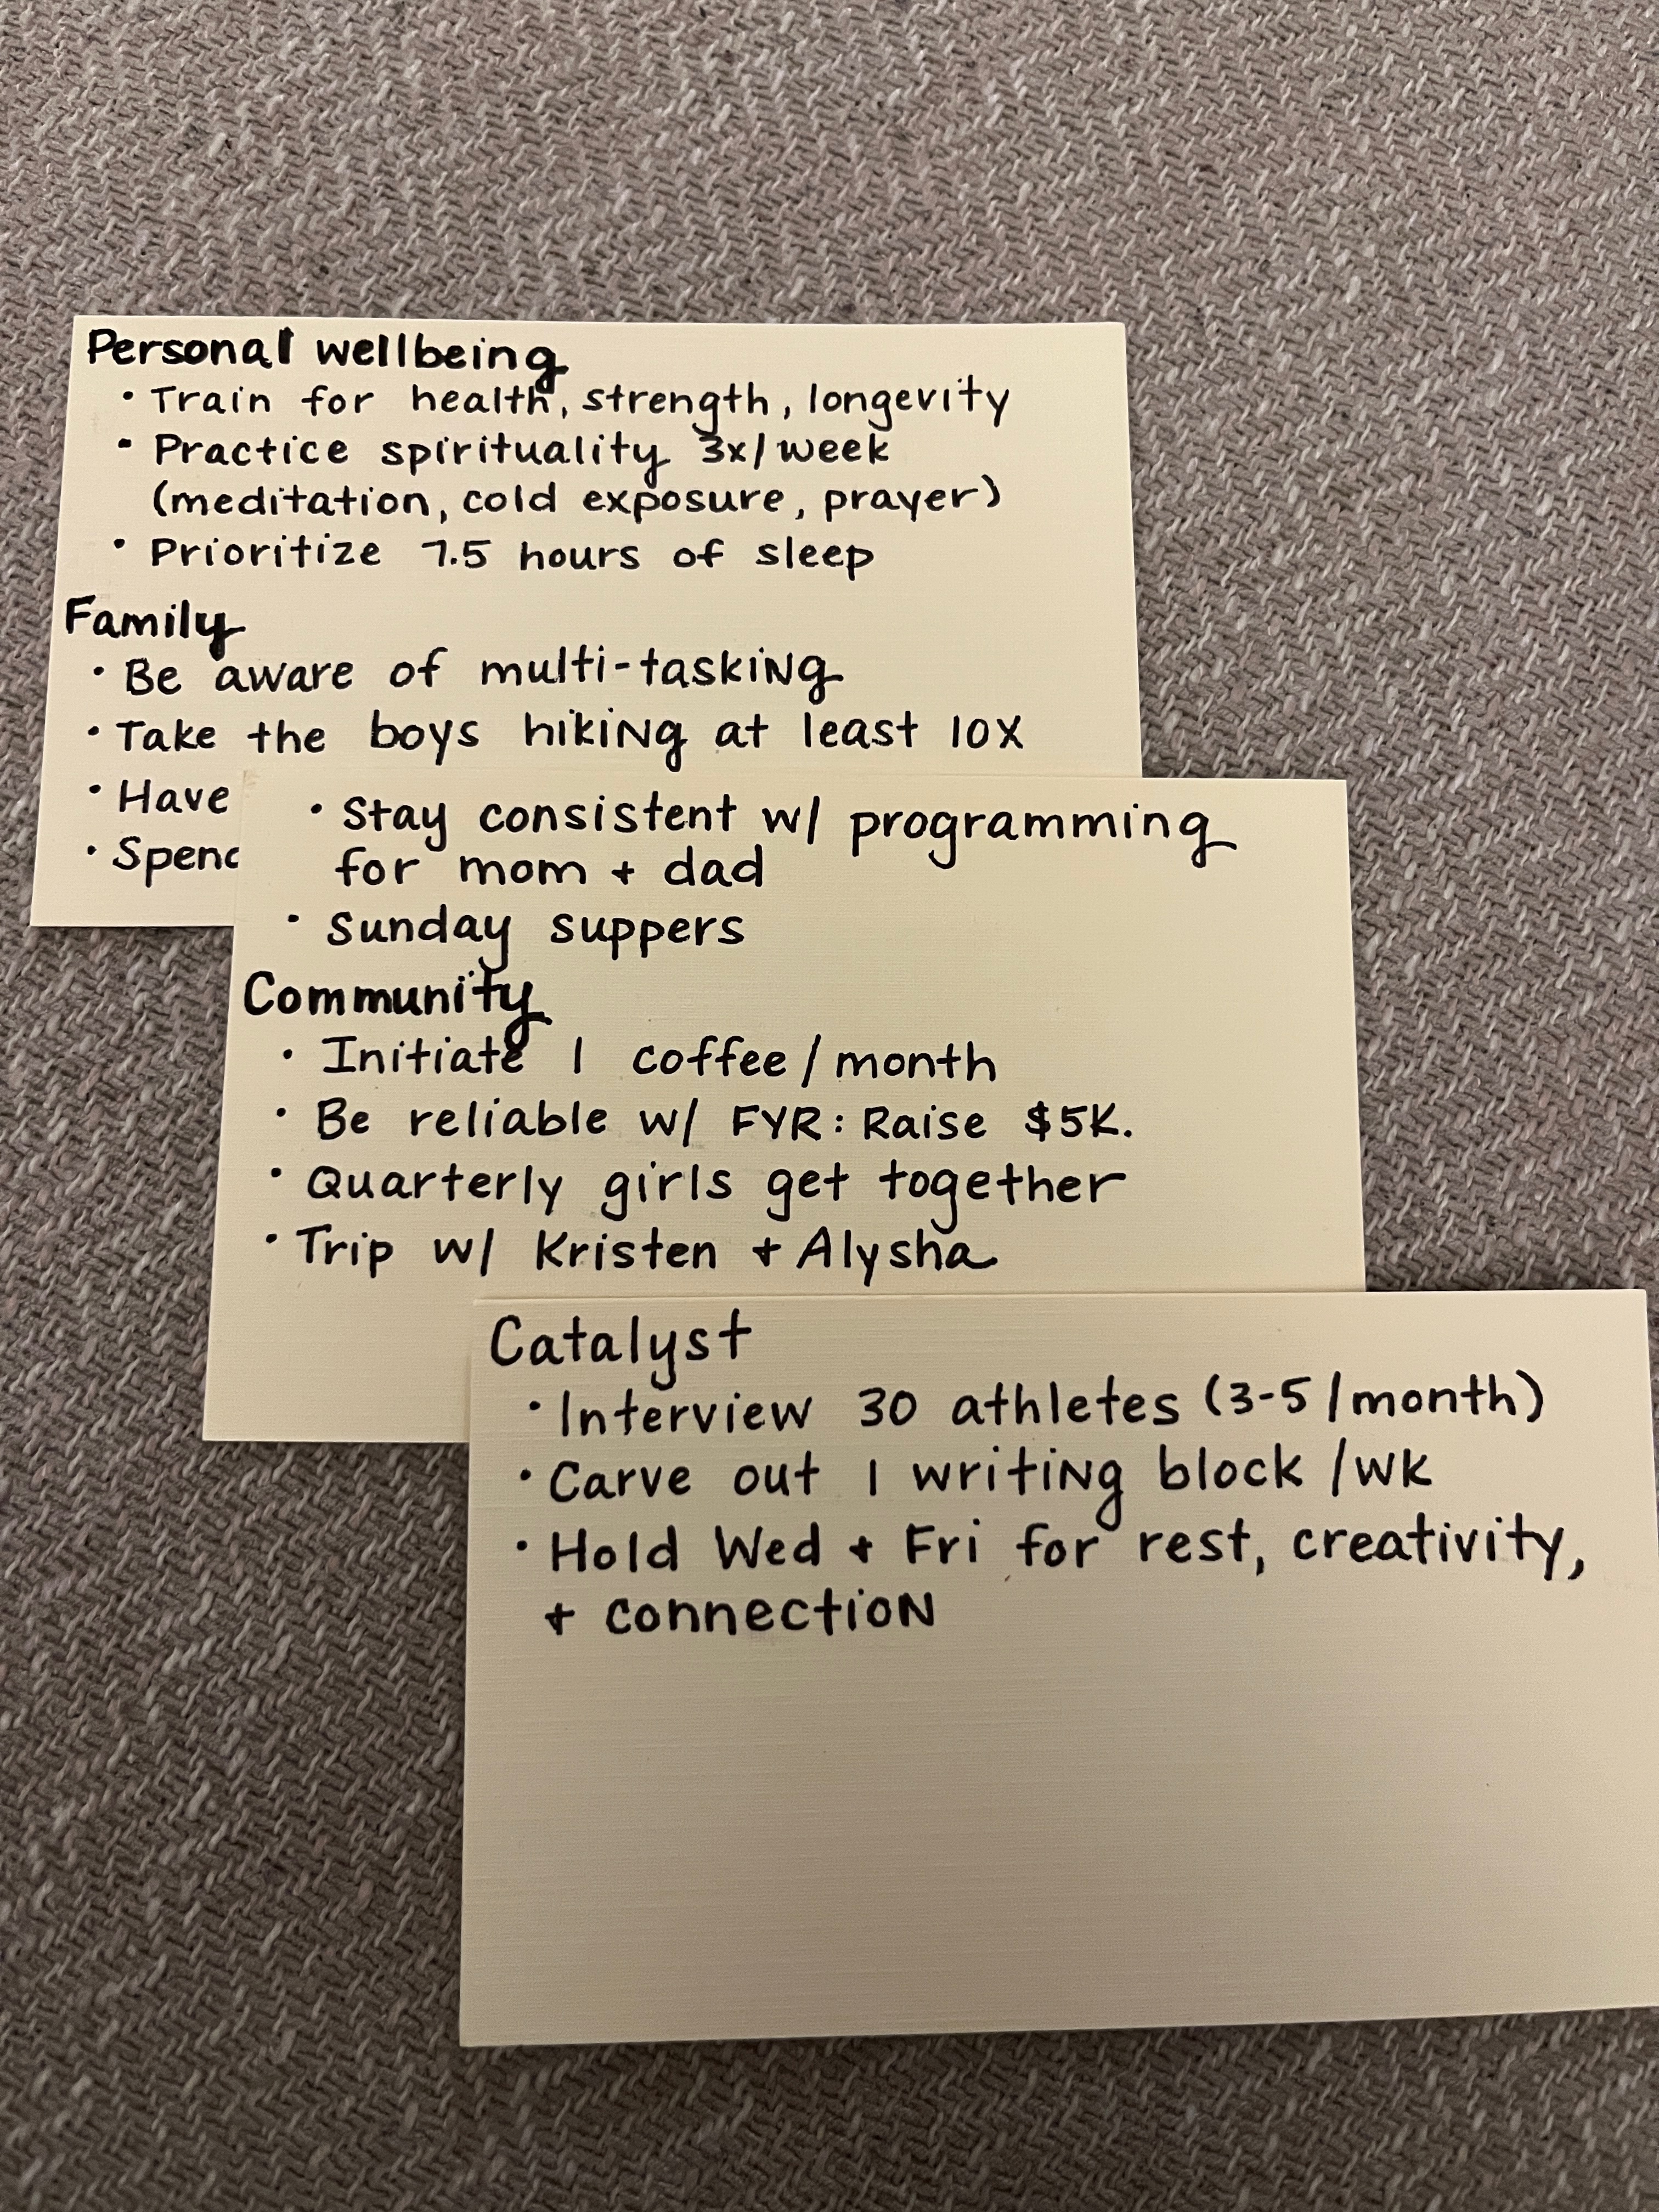 Personal wellbeing
• Train for health, strength, longevity
• Practice spirituality 3x/week
(meditation, cold exposure, prayer)
• Prioritize 7.5 hours of sleep
Family
• Be aware of multi-tasking
• Take the boys hiking at least 10X
• Have
•
• Stay consistent w/ programming
for mom + dad
• Sunday suppers
Community
• Initiate 1 coffee/month
• Be reliable w/ FYR: Raise $5K.
• Quarterly girls get together
• Trip w/ Kristen + Alysha
Catalyst
• Interview 30 athletes (3-5/month)
• Carve out 1 writing block /wk
• Hold Wed + Fri for rest, creativity,
+ connection